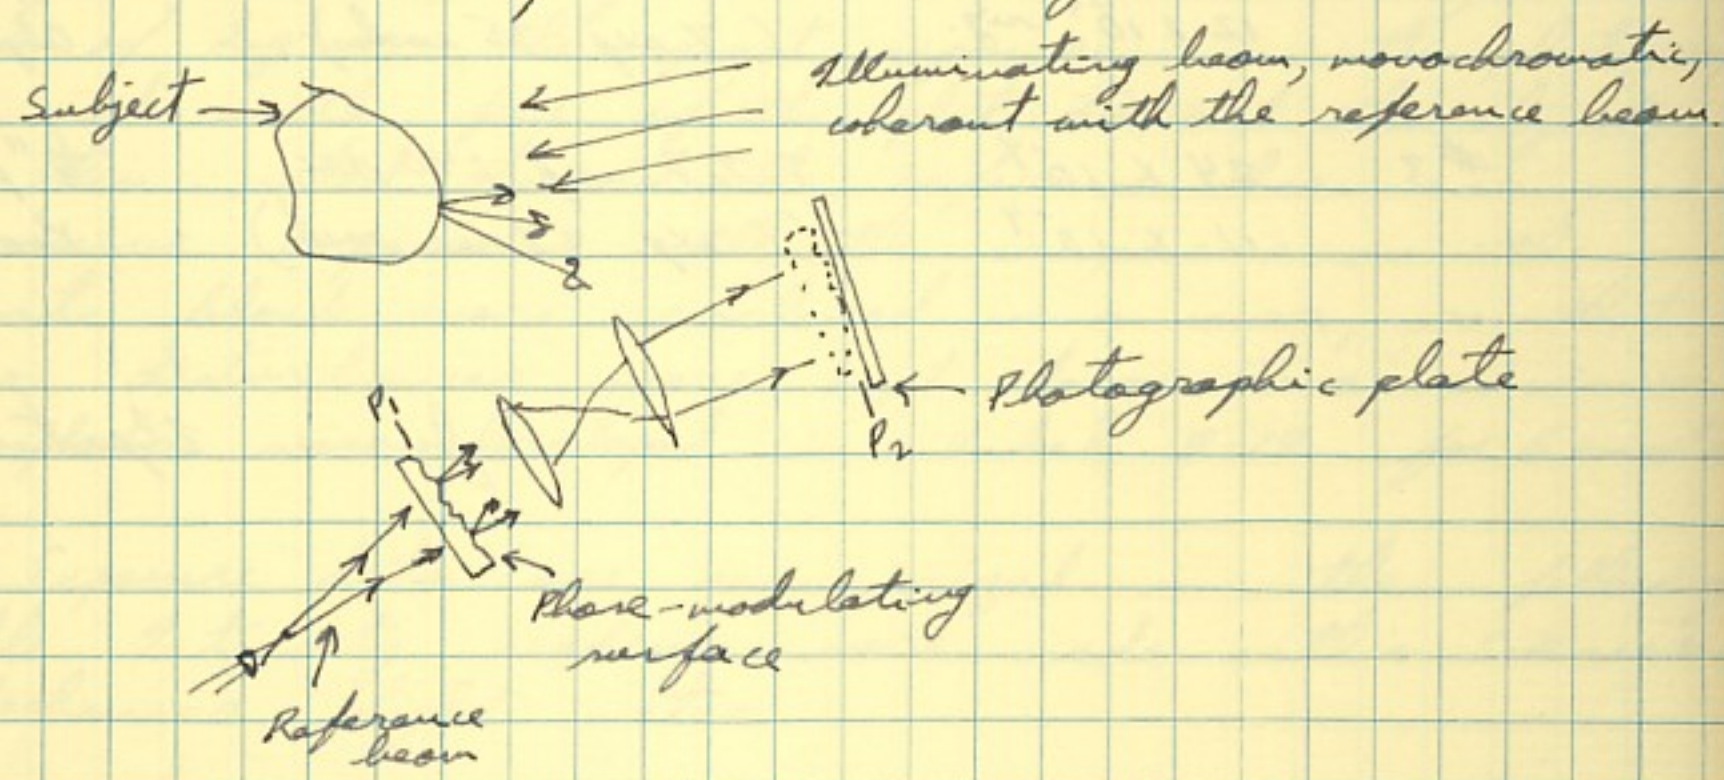 Illuminating beam, monochromatic,
Subject
coherent with the reference beam.
Photographic plate
P₁
P₂
Phase-modulating
surface
Reference
beam